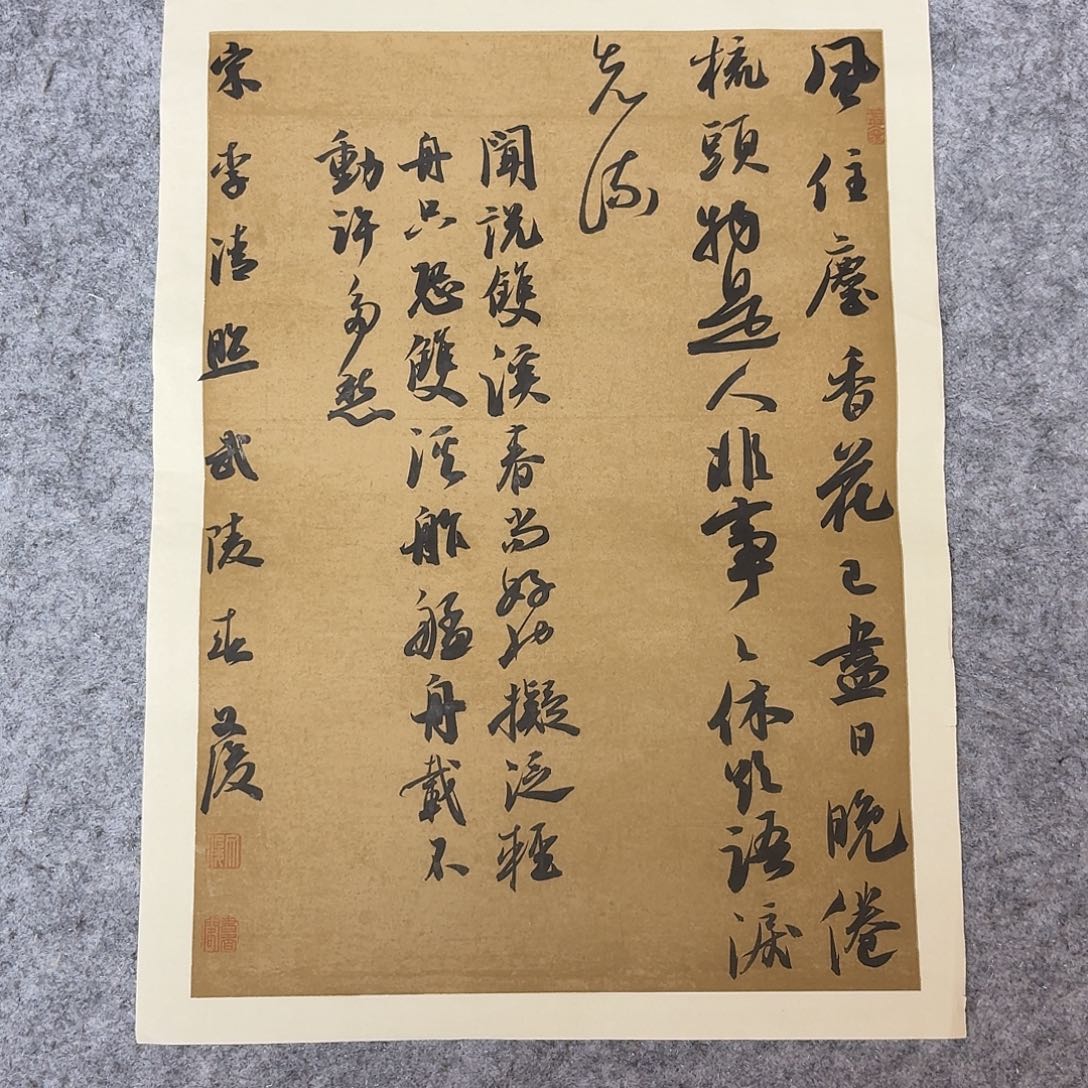 風住塵香花已盡日晚倦
梳頭物是人非事々休欲語淚
先流
聞說雙溪春尚好也擬泛輕
舟只恐雙溪舴艋舟載不
動許多愁
宋李清照武陵春